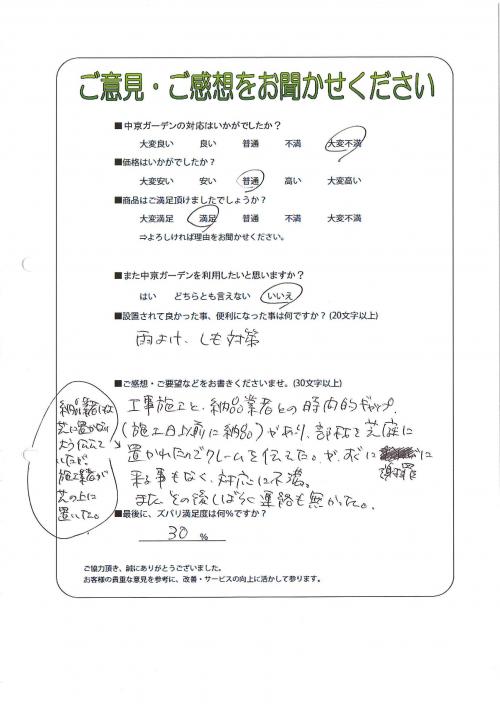 ご意見・ご感想をお聞かせください
■中京ガーデンの対応はいかがでしたか？
大変良い 良い 普通 不満 大変不満
■価格はいかがでしたか？
大変安い 安い 普通 高い 大変高い
■商品はご満足頂けましたでしょうか？
大変満足 満足 普通 不満 大変不満
⇒よろしければ理由をお聞かせください。
■また中京ガーデンを利用したいと思いますか？
はい どちらとも言えない いいえ
■設置されて良かった事、便利になった事は何ですか？(20文字以上)
雨よけ、しも対策
■ご感想・ご要望などをお書きくださいませ。(30文字以上)
工事施工と、納品業者との時間的ギャップ、
(施工日以前に納品)があり、部材を芝庭に
置かれたのでクレームを伝えてた。が、求に謝罪に
来る事もなく、対応に不満。
また、その後しばらく連絡も無かった。
納品業者には
芝に置かない
よう伝えて
いたが、
施工業者が
芝の上に
置いた。
■最後に、ズバリ満足度は何%ですか？
30 %
ご協力頂き、誠にありがとうございました。
お客様の貴重な意見を参考に、改善・サービスの向上に活かして参ります。